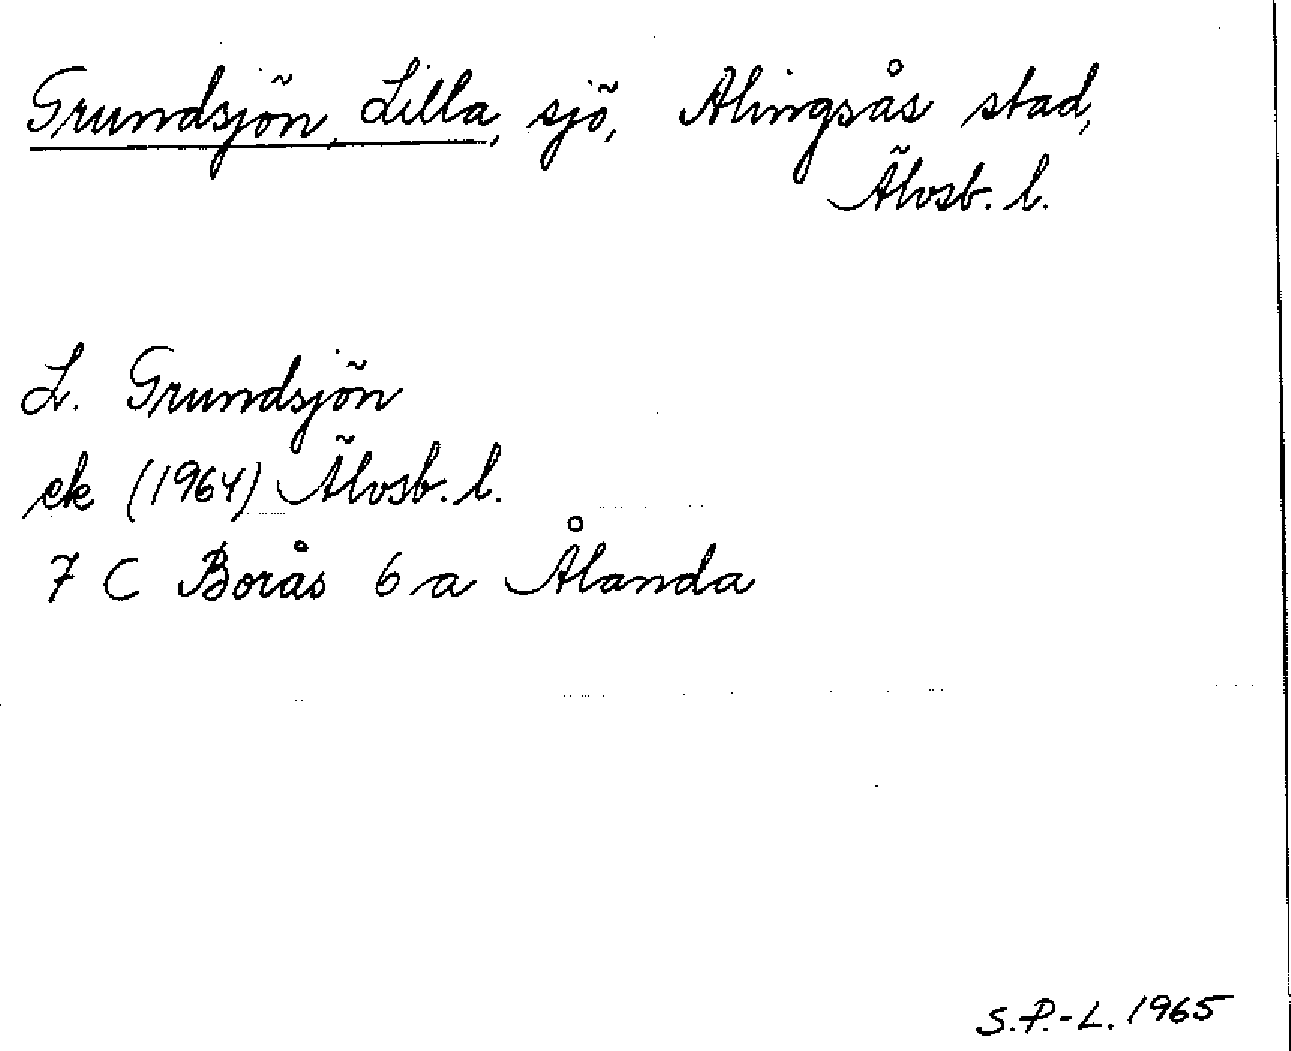 Grundsjön, Lilla, sjö, Alingsås stad,
Älvsb. l.
L. Grundsjön
ek (1964) Älvsb. l.
7 C Borås 6 a Ålanda
S.P.-L. 1965